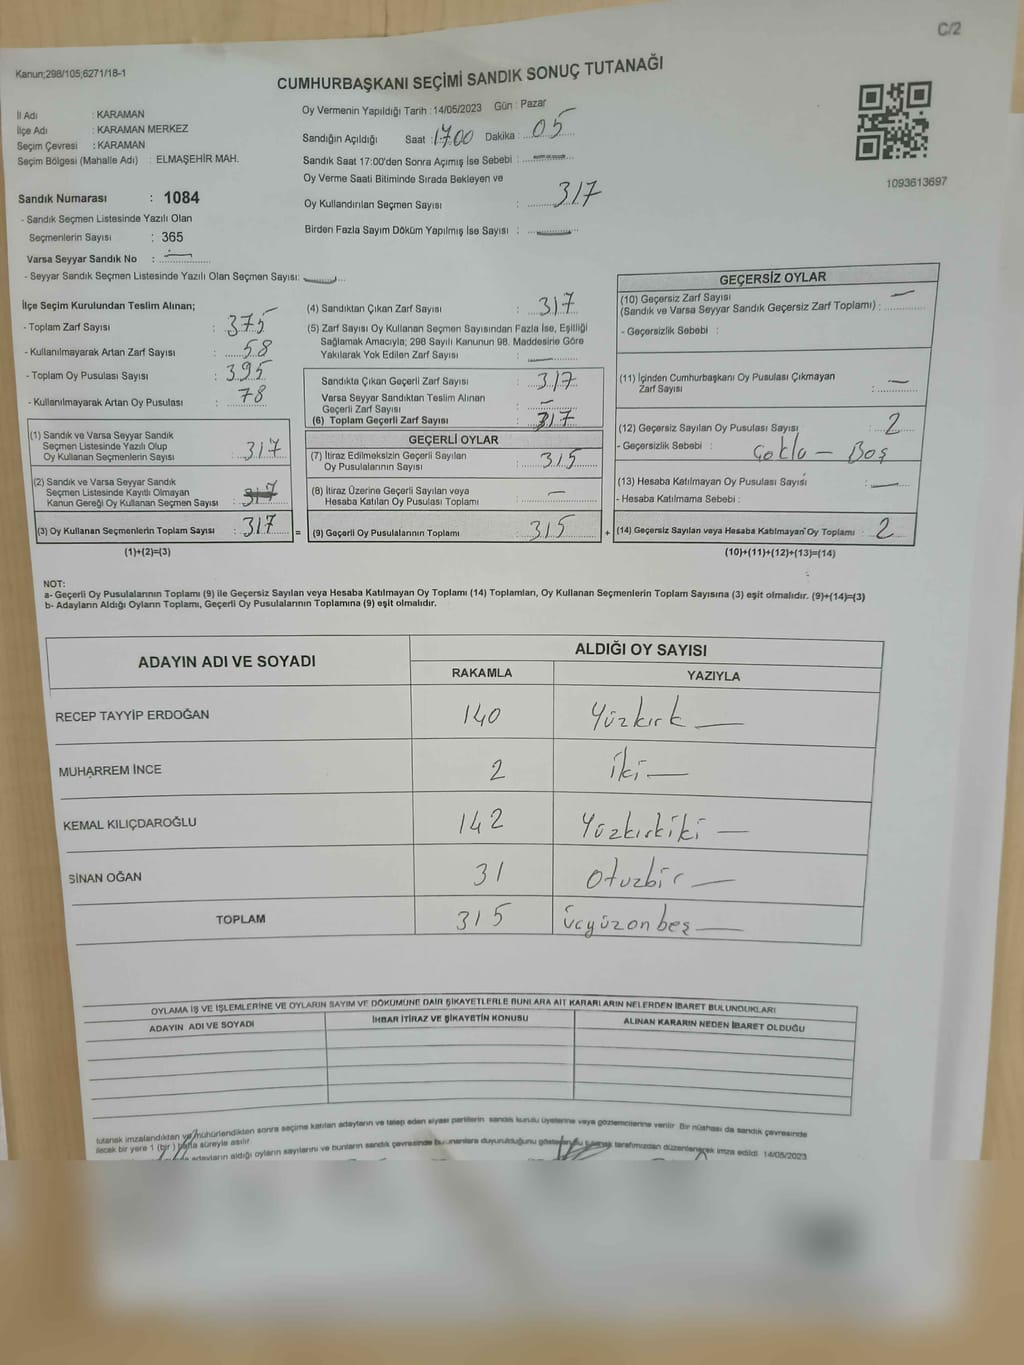 C/2
Kanun;298/105;6271/18-1
CUMHURBAŞKANI SEÇİMİ SANDIK SONUÇ TUTANAĞI
İl Adı : KARAMAN
İlçe Adı : KARAMAN MERKEZ
Seçim Çevresi : KARAMAN
Seçim Bölgesi (Mahalle Adı) : ELMAŞEHİR MAH.
Sandık Numarası : 1084
- Sandık Seçmen Listesinde Yazılı Olan
Seçmenlerin Sayısı : 365
Varsa Seyyar Sandık No : —
- Seyyar Sandık Seçmen Listesinde Yazılı Olan Seçmen Sayısı: —
Oy Vermenin Yapıldığı Tarih : 14/05/2023 Gün : Pazar
Sandığın Açıldığı Saat : 17.00 Dakika : 05
Sandık Saat 17:00'den Sonra Açımış İse Sebebi : —
Oy Verme Saati Bitiminde Sırada Bekleyen ve
Oy Kullandırılan Seçmen Sayısı : 317
Birden Fazla Sayım Döküm Yapılmış İse Sayısı : —
1093613697
İlçe Seçim Kurulundan Teslim Alınan;
- Toplam Zarf Sayısı : 375
- Kullanılmayarak Artan Zarf Sayısı : 58
- Toplam Oy Pusulası Sayısı : 395
- Kullanılmayarak Artan Oy Pusulası : 78
(1) Sandık ve Varsa Seyyar Sandık
Seçmen Listesinde Yazılı Olup
Oy Kullanan Seçmenlerin Sayısı : 317
(2) Sandık ve Varsa Seyyar Sandık
Seçmen Listesinde Kayıtlı Olmayan
Kanun Gereği Oy Kullanan Seçmen Sayısı : 317
(3) Oy Kullanan Seçmenlerin Toplam Sayısı : 317 =
(1)+(2)=(3)
(4) Sandıktan Çıkan Zarf Sayısı : 317
(5) Zarf Sayısı Oy Kullanan Seçmen Sayısından Fazla İse, Eşitliği
Sağlamak Amacıyla; 298 Sayılı Kanunun 98. Maddesine Göre
Yakılarak Yok Edilen Zarf Sayısı : —
Sandıkta Çıkan Geçerli Zarf Sayısı : 317
Varsa Seyyar Sandıktan Teslim Alınan
Geçerli Zarf Sayısı : —
(6) Toplam Geçerli Zarf Sayısı : 317
GEÇERLİ OYLAR
(7) İtiraz Edilmeksizin Geçerli Sayılan
Oy Pusulalarının Sayısı : 315
(8) İtiraz Üzerine Geçerli Sayılan veya
Hesaba Katılan Oy Pusulası Toplamı : —
(9) Geçerli Oy Pusulalarının Toplamı : 315 +
GEÇERSİZ OYLAR
(10) Geçersiz Zarf Sayısı
(Sandık ve Varsa Seyyar Sandık Geçersiz Zarf Toplamı) : —
- Geçersizlik Sebebi :
(11) İçinden Cumhurbaşkanı Oy Pusulası Çıkmayan
Zarf Sayısı : —
(12) Geçersiz Sayılan Oy Pusulası Sayısı : 2
- Geçersizlik Sebebi : Çoklu — Boş
(13) Hesaba Katılmayan Oy Pusulası Sayısı : —
- Hesaba Katılmama Sebebi :
(14) Geçersiz Sayılan veya Hesaba Katılmayan Oy Toplamı : 2
(10)+(11)+(12)+(13)=(14)
NOT:
a- Geçerli Oy Pusulalarının Toplamı (9) ile Geçersiz Sayılan veya Hesaba Katılmayan Oy Toplamı (14) Toplamları, Oy Kullanan Seçmenlerin Toplam Sayısına (3) eşit olmalıdır. (9)+(14)=(3)
b- Adayların Aldığı Oyların Toplamı, Geçerli Oy Pusulalarının Toplamına (9) eşit olmalıdır.
ADAYIN ADI VE SOYADI ALDIĞI OY SAYISI
RAKAMLA YAZIYLA
RECEP TAYYİP ERDOĞAN 140 Yüzkırk —
MUHARREM İNCE 2 İki —
KEMAL KILIÇDAROĞLU 142 Yüzkırkiki —
SİNAN OĞAN 31 Otuzbir —
TOPLAM 315 Üçyüzonbeş —
OYLAMA İŞ VE İŞLEMLERİNE VE OYLARIN SAYIM VE DÖKÜMÜNE DAİR ŞİKAYETLERLE BUNLARA AİT KARARLARIN NELERDEN İBARET BULUNDUKLARI
ADAYIN ADI VE SOYADI İHBAR İTİRAZ VE ŞİKAYETİN KONUSU ALINAN KARARIN NEDEN İBARET OLDUĞU
tutanak imzalandıktan ve mühürlendikten sonra seçime katılan adayların ve talep eden siyasi partilerin sandık kurulu üyelerine veya gözlemcilerine verilir. Bir nüshası da sandık çevresinde
ilecek bir yere 1 (bir) hafta süreyle asılır.
adayların aldığı oyların sayılarını ve bunların sandık çevresinde bulunanlara duyurulduğunu gösteren bu tutanak tarafımızdan düzenlenerek imza edildi. 14/05/2023